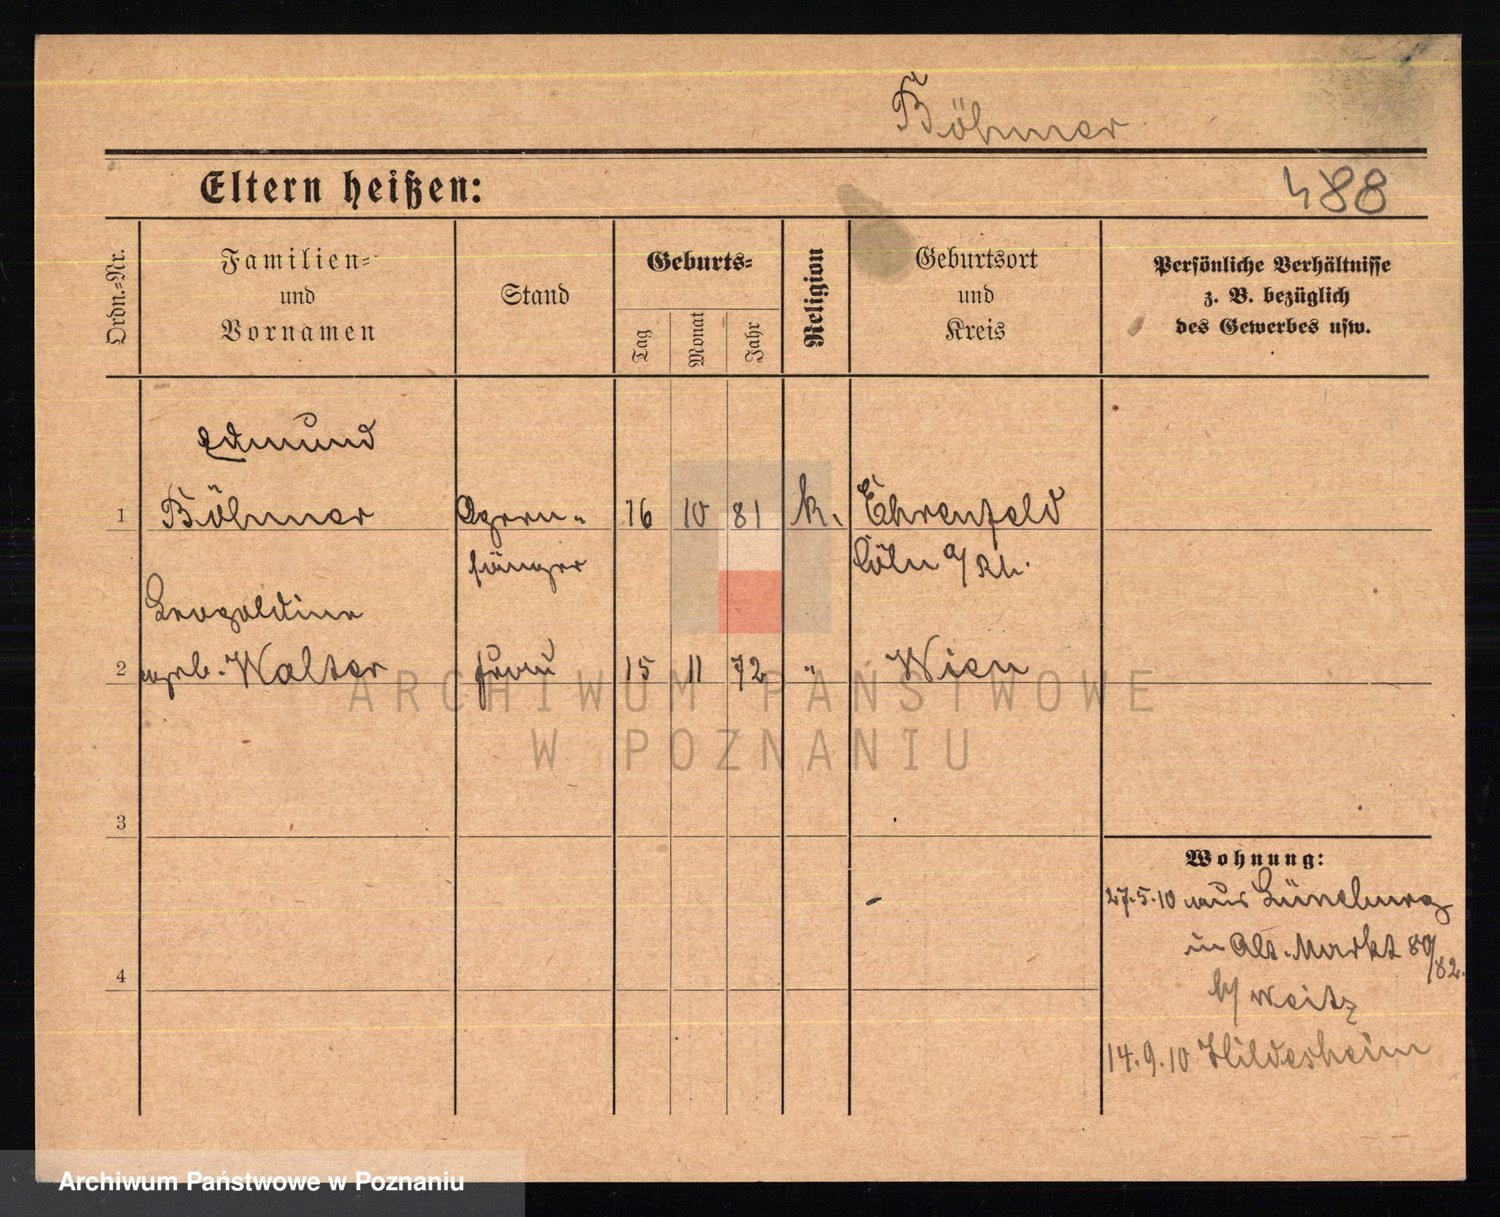 Böhmer
Eltern heißen:
488
Ordn.-Nr.
Familien-
und
Vornamen
Stand
Geburts-
Tag
Monat
Jahr
Religion
Geburtsort
und
Kreis
Persönliche Verhältnisse
z. B. bezüglich
des Gewerbes usw.
Edmund
1 Böhmer Opern- 16 10 81 k. Ehrenfeld
sänger Cöln a/Rh.
Leopoldine
2 geb. Walter Frau 15 11 72 " Wien
ARCHIWUM PAŃSTWOWE
W POZNANIU
3
Wohnung:
27.5.10 aus Lüneburg
in Alt. Markt 80/82.
4
b/ Weitz
14.9.10 Hildesheim
Archiwum Państwowe w Poznaniu